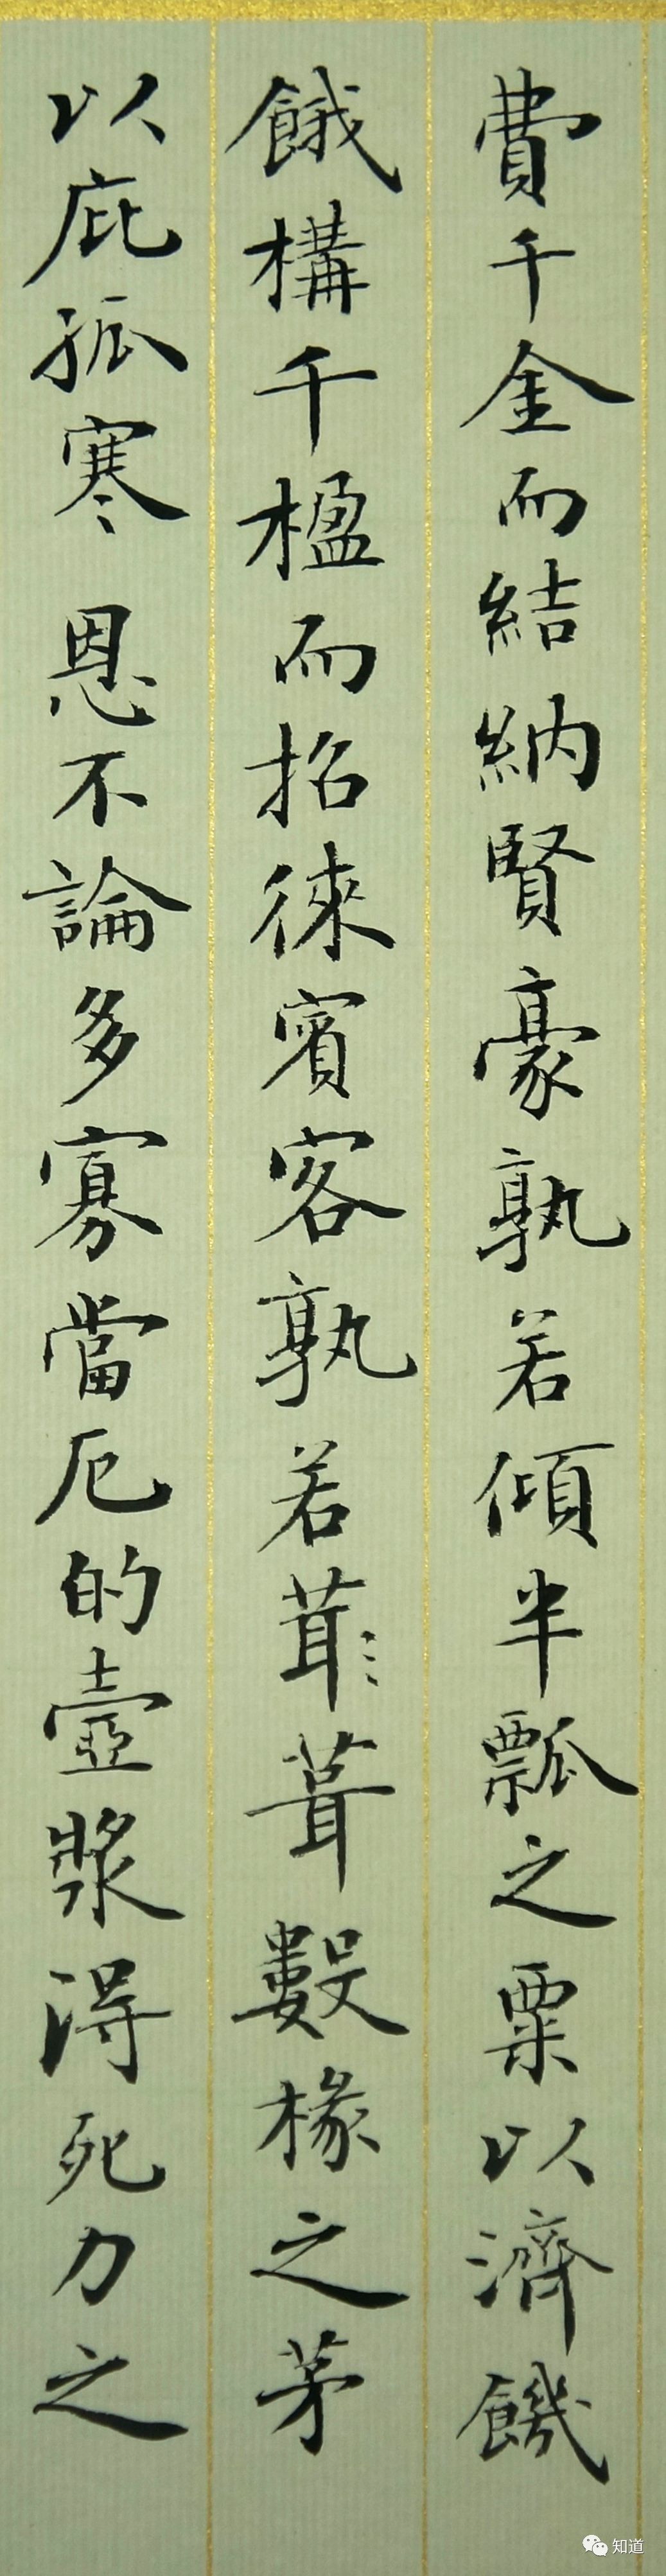 費千金而結納賢豪孰若傾半瓢之粟以濟饑
餓構千楹而招徠賓客孰若茸葺數椽之茅
以庇孤寒 恩不論多寡當厄的壺漿得死力之
知道